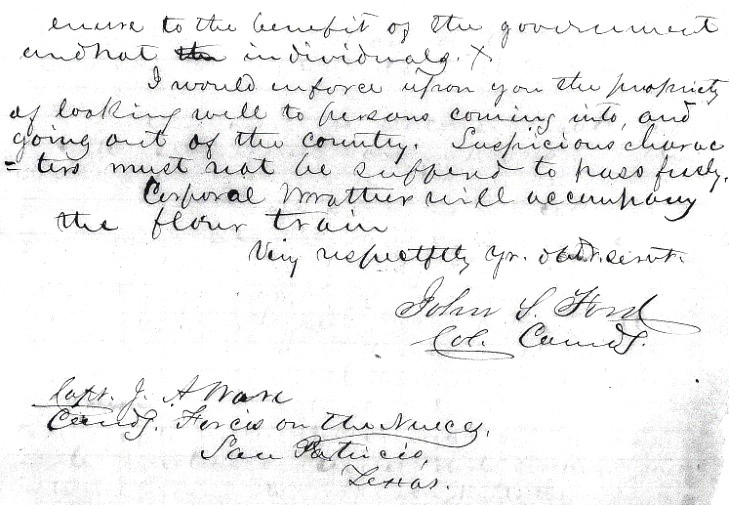 enure to the benefit of the government
and not the individuals. X
I would enforce upon you the propriety
of looking well to persons coming into, and
going out of the country. Suspicious charac
= ters must not be suffered to pass freely.
Corporal Mather will accompany
the flour train
Very respectfully yr. obdt. servt.
John S. Ford
Col. Comdg.
Capt. J. A Ware
Comdg. Forces on the Nueces,
San Patricio,
Texas.